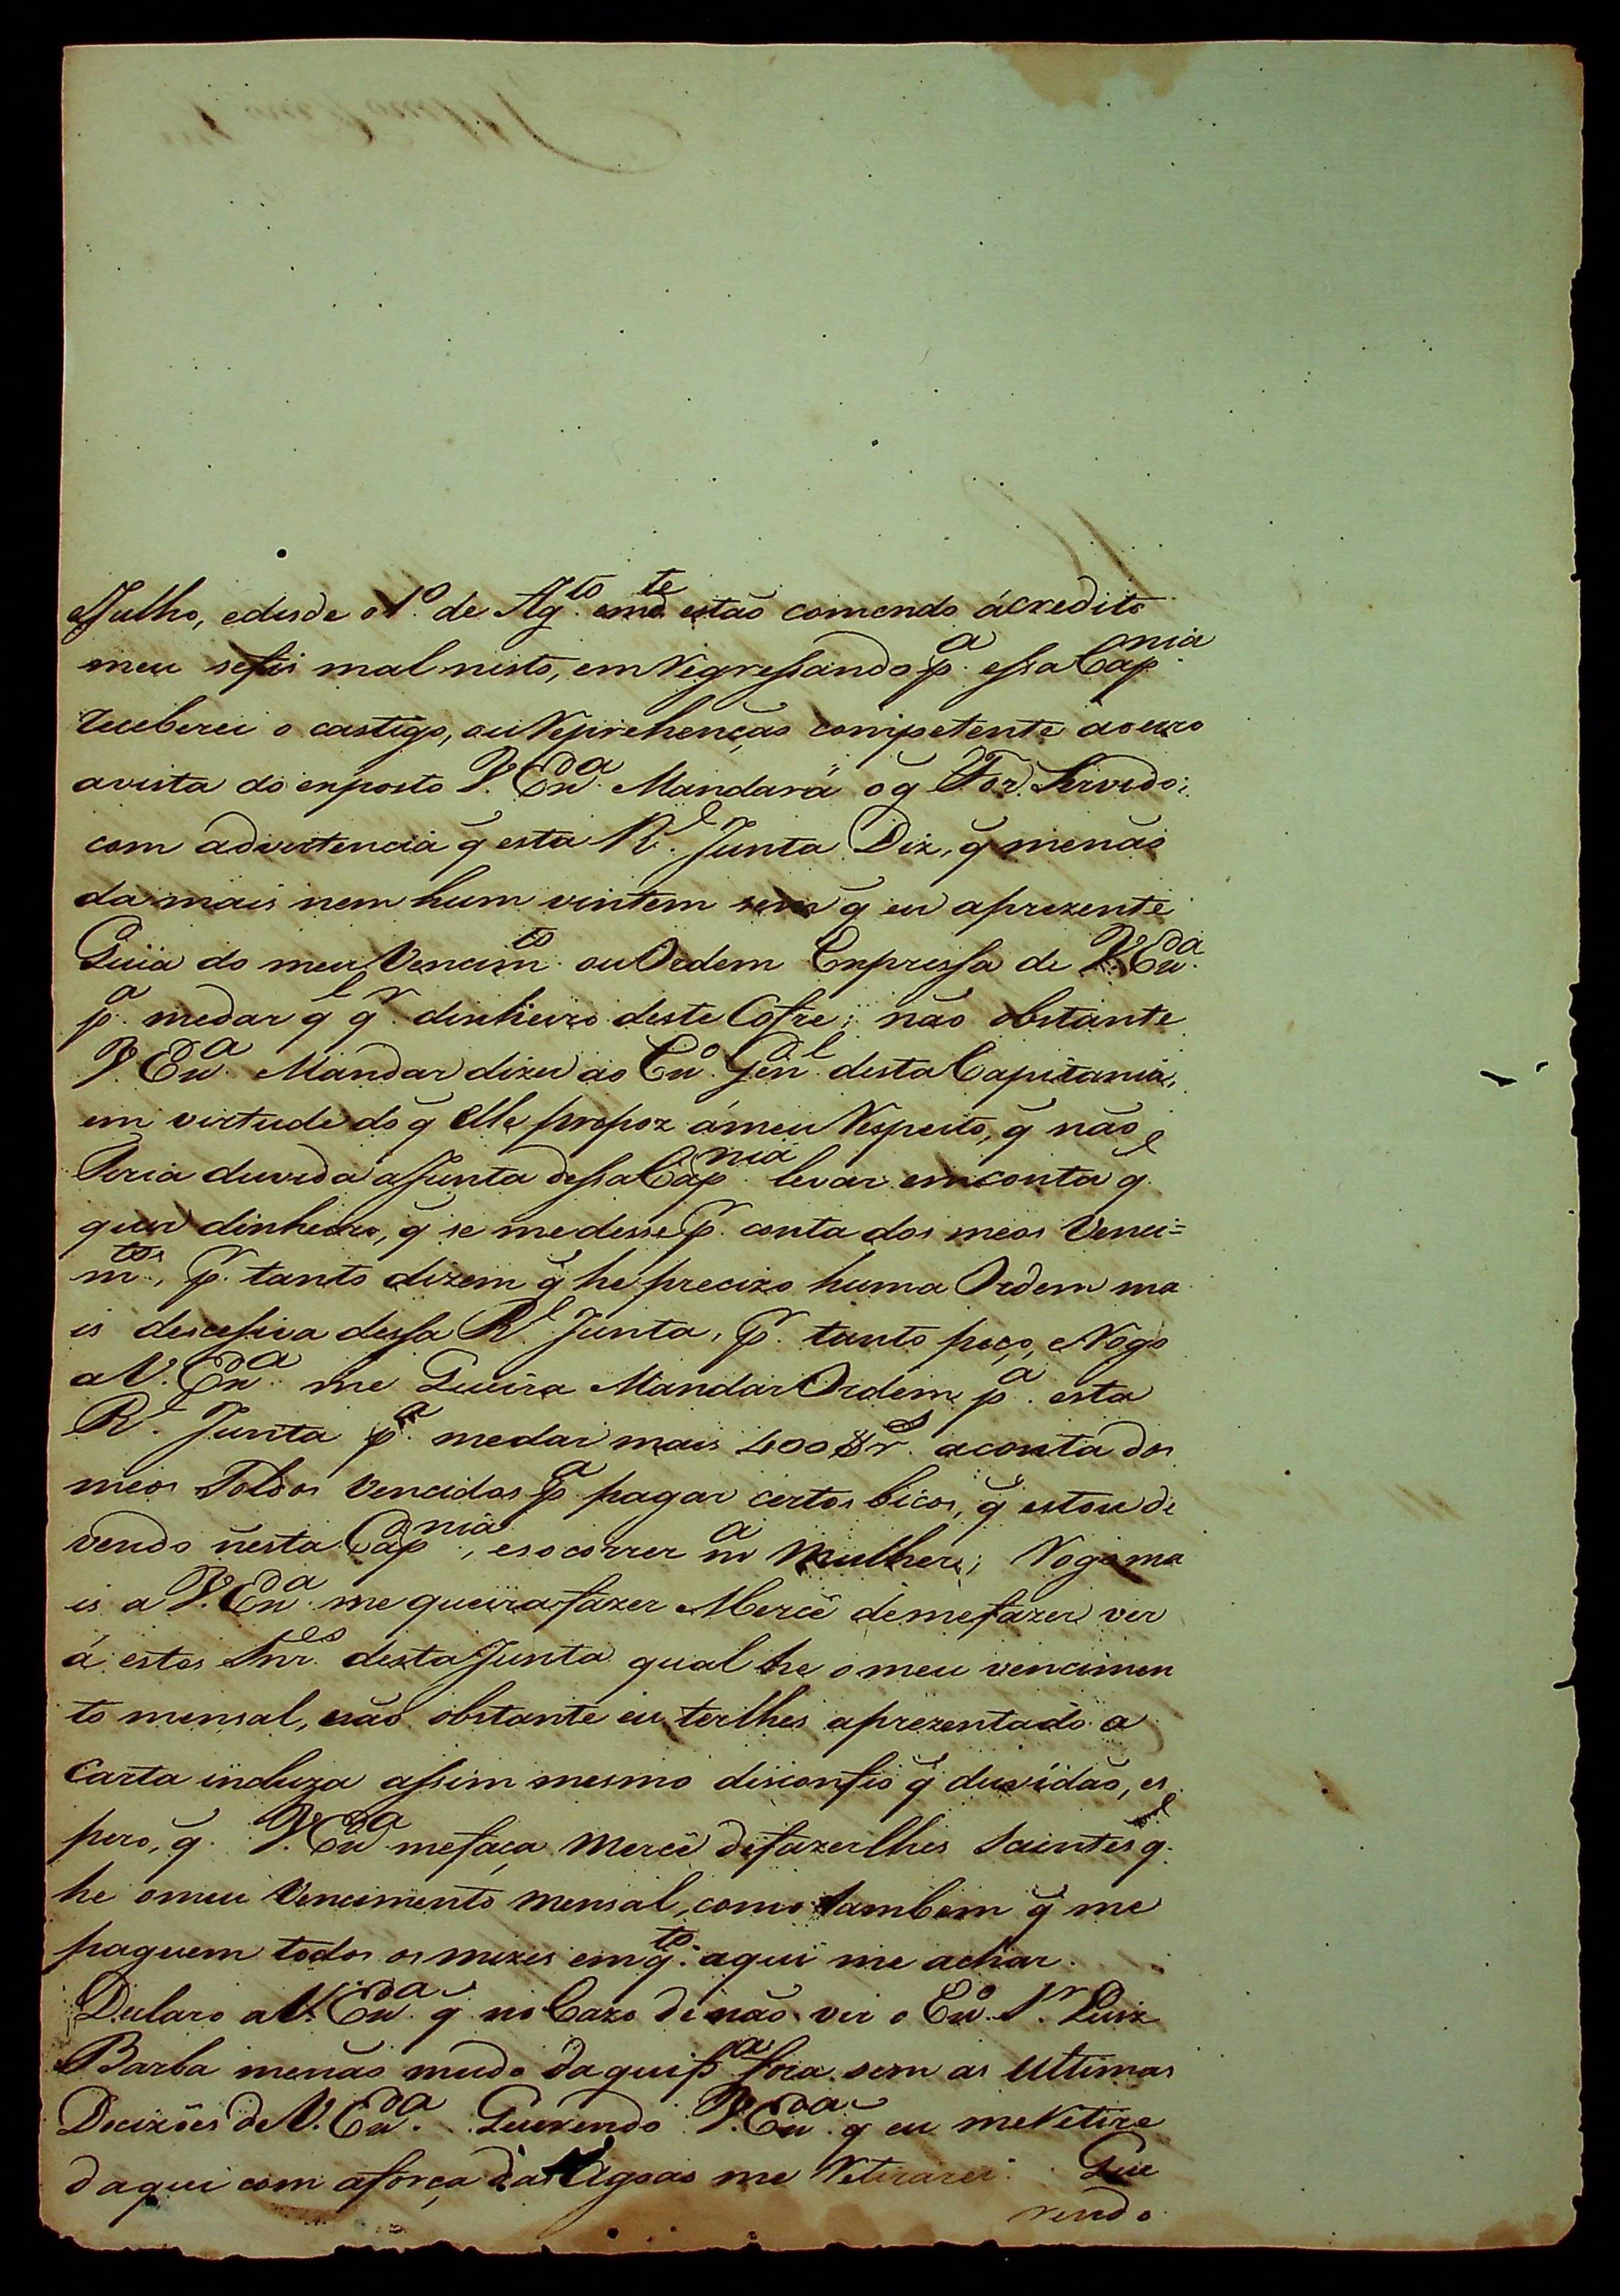 Julho, edesde o 1º. de Ag.to em d.te estão comendo ácredito
meu sefis mal nisto, em Regressando p.ª essa Cap.nia
receberei o castigo, ou Reprehenção competente ao erro
avista do exposto V. Ex.ª Mandará o q̃ For Servido;
com advertencia q̃ esta R.l Junta Diz, q̃ menão
da mais nem hum vintem sem q̃ eu aprezente
Guia do meu Vencim.to ou Ordem Expressa de V. Ex.ª
p.ª medar q.l q.r dinheiro deste Cofre; não obstante
V. Ex.ª Mandar dizer ao Ex.º Gen.l desta Capitania,
em virtude do q̃ elle propoz ámeu Respeito, q̃ não
Teria duvida aJunta dessa Cap.nia levar emconta q.l
quer dinheiro, q̃ se medesse p.r conta dos meos Venci=
m.tos, p.r tanto dizem q̃ he precizo huma Ordem ma
is descesiva dessa R.l Junta, p.r tanto peço, e Rogo
a V. Ex.ª me Queira Mandar Ordem p.ª esta
R.l Junta p.ª medar mais 400$r.s aconta dos
meos Soldos Vencidos p.ª pagar certos bicos, q̃ estou de
vendo nesta Cap.nia, esocorrer m.ª Mulher; Rogo ma
is a V. Ex.ª me queira fazer Mercê demefazer ver
á estes Snr.es desta Junta qual he omeu vencimen
to mensal, não obstante eu terlhes aprezentado a
Carta incluza assim mesmo disconfio q̃ duvidão, es
pero, q̃ V. Ex.ª mefaça Mercê defazerlhes Saintes q.l
he omeu Vencimento Mensal, como tambem q̃ me
paguem todos os mezes em q.to aqui me achar.
Declaro a V. Ex.ª q̃ no Cazo de não vir o Ex.º S.r Luiz
Barba menão mudo daqui p.ª fora sem as Ultimas
Decizões de V. Ex.ª. Querendo V. Ex.ª q̃ eu meRetire
daqui com aforça das Agoas me Retirarei. Que
rendo